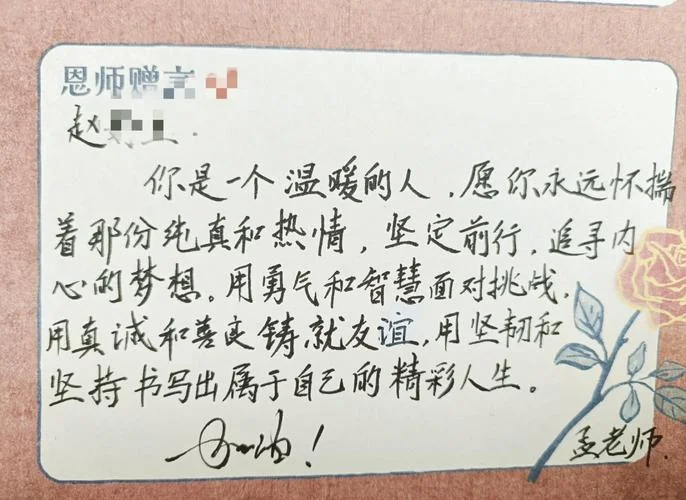 恩师赠言
赵
你是一个温暖的人，愿你永远怀揣
着那份纯真和热情，坚定前行，追寻内
心的梦想。用勇气和智慧面对挑战，
用真诚和善良铸就友谊，用坚韧和
坚持书写出属于自己的精彩人生。
加油！
孟老师